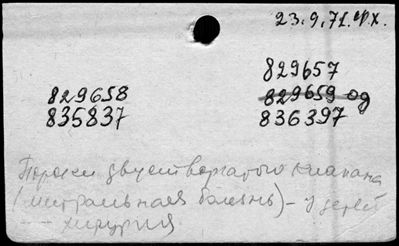 23.9.71.
829657
829658 829659 од
835837 836397
Пороки двустворчатого клапана
(митральная болезнь) – у детей
– – хирургия